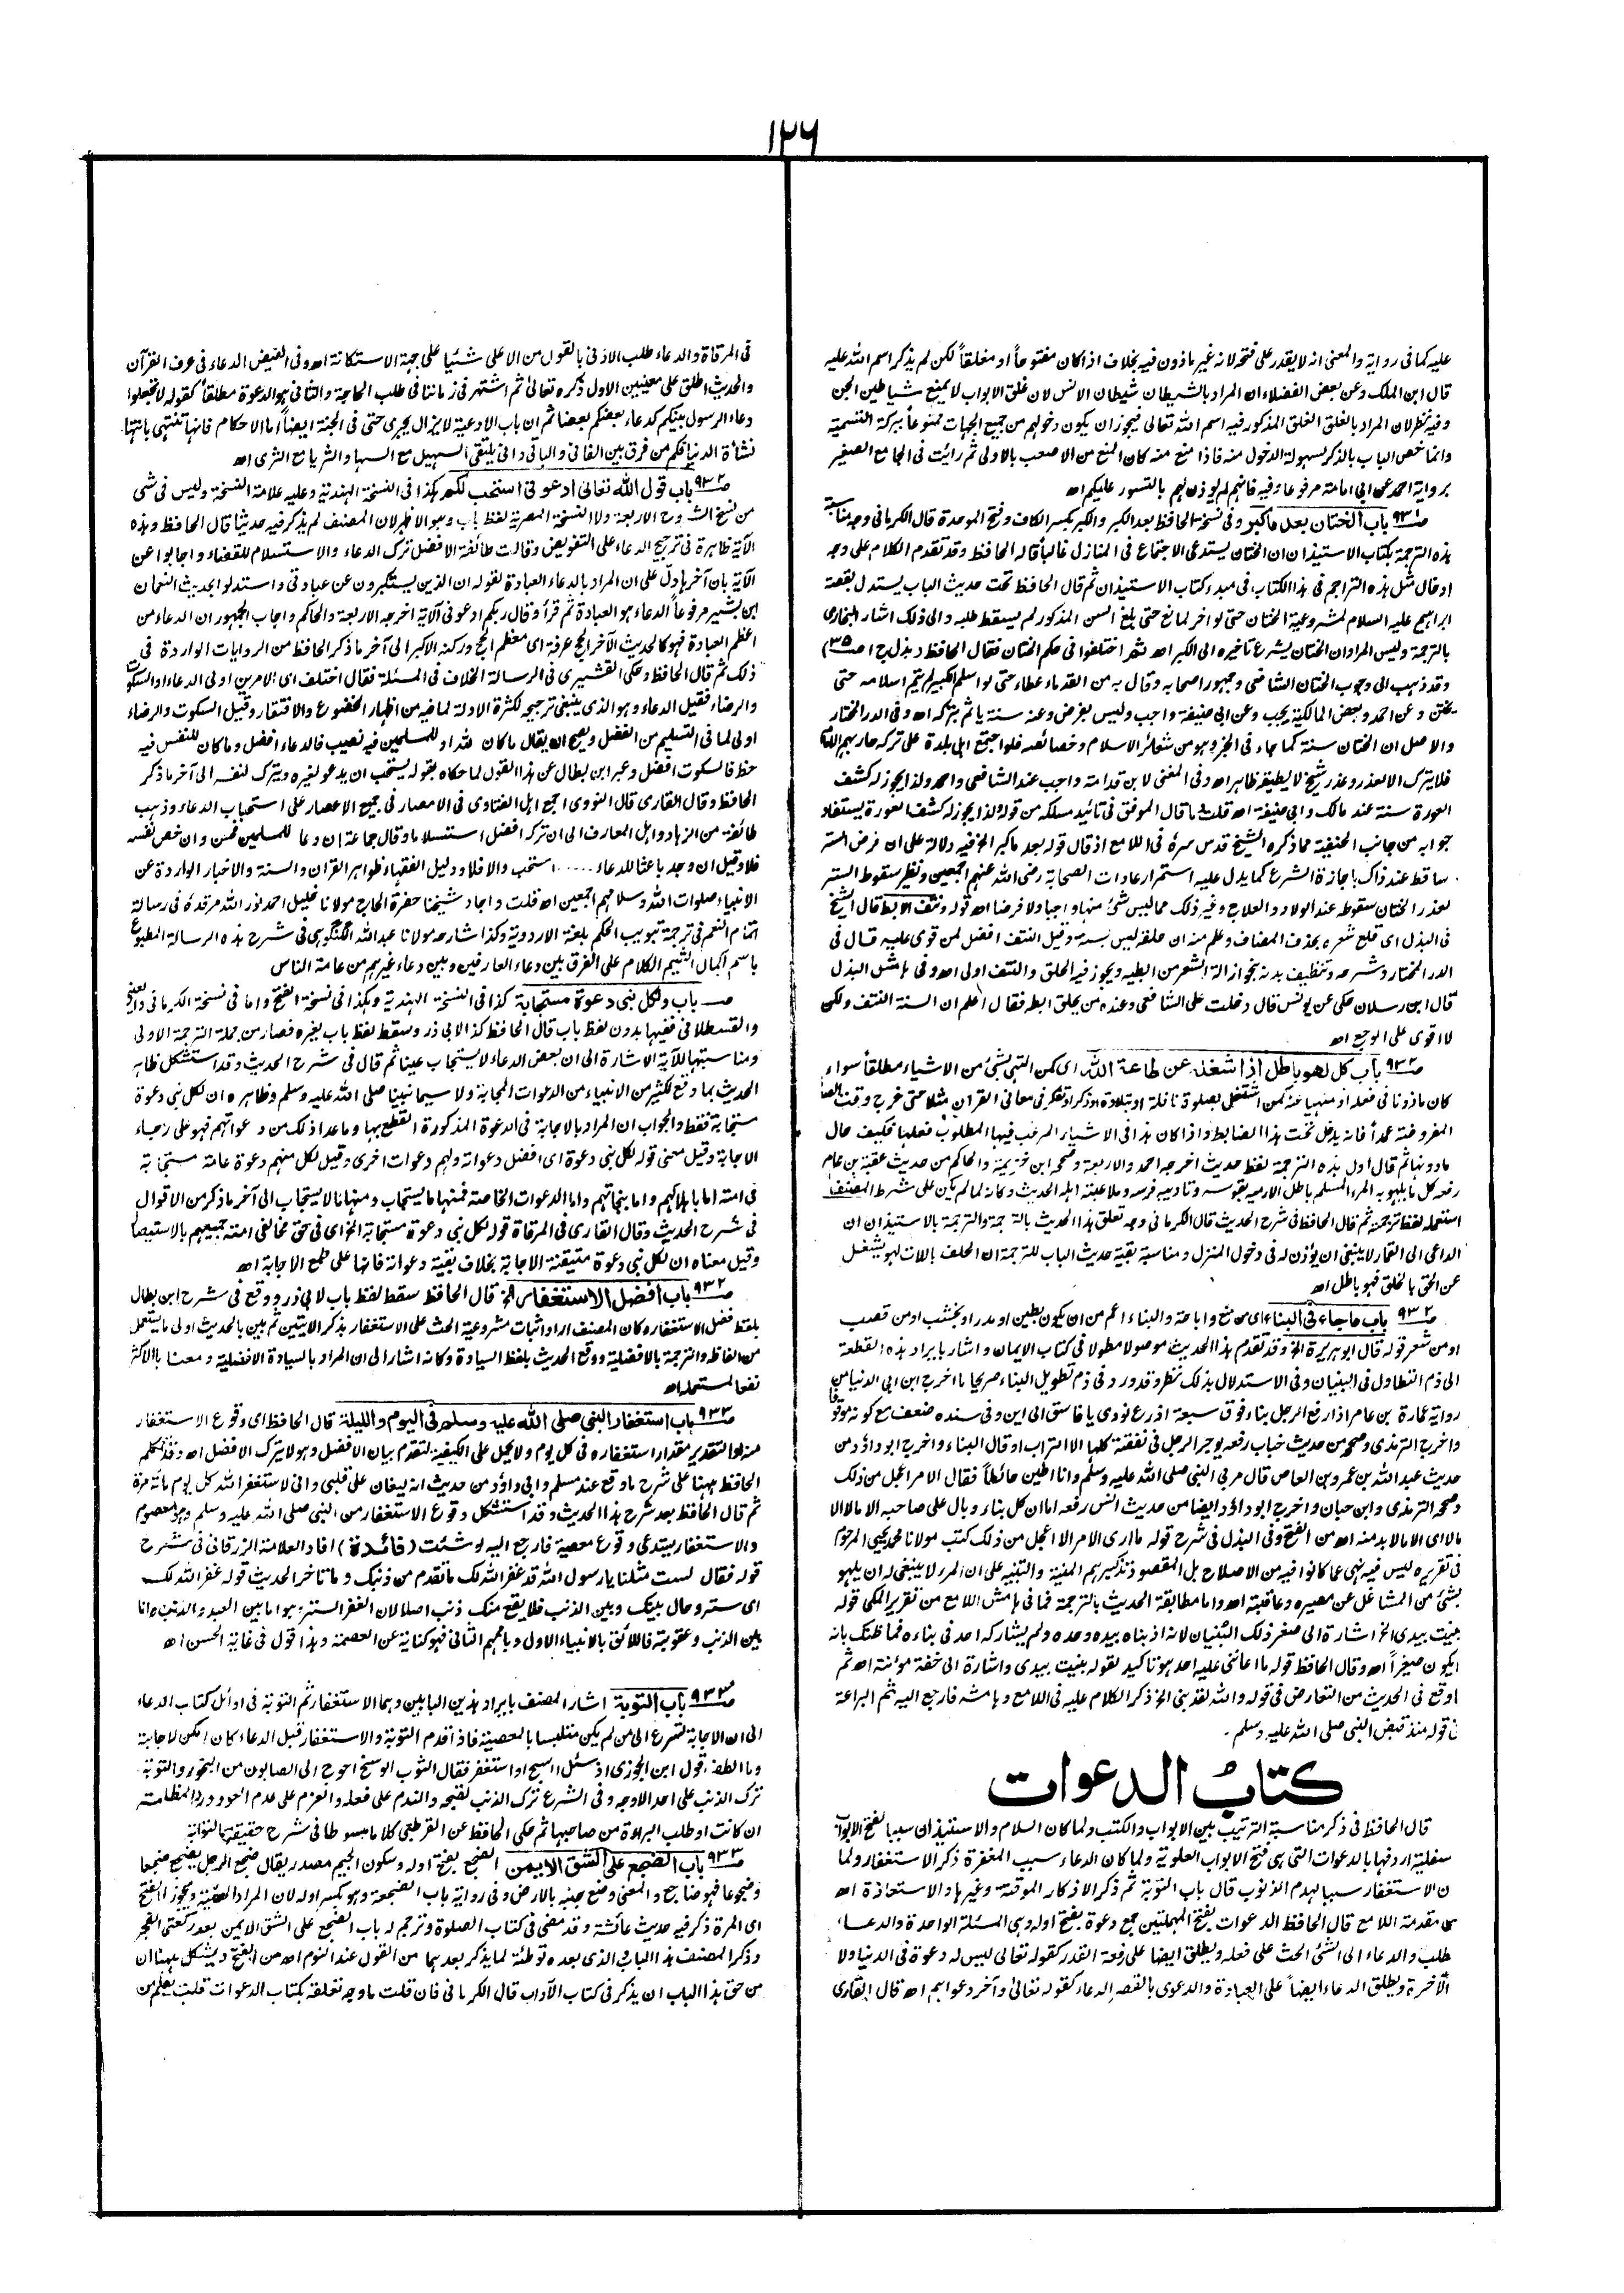 ١٢٦
عليه كما في رواية والمعنى انه لا يقدر على فتحه لانه غير ماذون فيه بخلاف اذا كان مفتوحاً او مغلقاً لكن لم يذكر اسم الله عليه
قال ابن الملك وعن بعض الفضلاء ان المراد بالشيطان شيطان الانس لان غلق الابواب لا يمنع شياطين الجن
وفيه نظر لان المراد بالغلق الغلق المذكور فيه اسم الله تعالى فيجوز ان يكون دخولهم من جميع الجهات ممنوعاً ببركة التسمية
وانما خص الباب بالذكر لسهولة الدخول منه فاذا منع منه كان المنع من الاصعب بالاولى ثم رأيت في الجامع الصغير
برواية احمد عن ابي امامة مرفوعاً وفيه فانهم لم يوذن لهم بالتسور عليكم اھ
صـ٩٣١ باب الختان بعد ما كبر وفي نسخة الحافظ بعد الكبر والكبر بكسر الكاف وفتح الموحدة قال الكرماني وجه مناسبة
هذه الترجمة بكتاب الاستيذان ان الختان يستدعي الاجتماع في المنازل غالباً قاله الحافظ وقد تقدم الكلام على وجه
ادخال مثل هذه التراجم في هذا الكتاب في مبدء كتاب الاستيذان ثم قال الحافظ تحت حديث الباب يستدل بقصة
ابراهيم عليه السلام لمشروعية الختان حتى لو اخر لمانع حتى بلغ السن المذكور لم يسقط طلبه والى ذلك اشار البخاري
بالترجمة وليس المراد ان الختان يشرع تاخيره الى الكبر اھ ثم اختلفوا في حكم الختان فقال الحافظ (بذل ج ١ صـ٣٥)
وقد ذهب الى وجوب الختان الشافعي وجمهور اصحابه وقال به من القدماء عطاء حتى لو اسلم الكبير لم يتم اسلامه حتى
يختن وعن احمد وبعض المالكية يجب وعن ابي حنيفة واجب وليس بفرض وعنه سنة ياثم بتركه اھ وفي الدر المختار
والاصل ان الختان سنة كما جاء في الخبر وهو من شعائر الاسلام وخصائصه فلو اجتمع اهل بلدة على تركه حاربهم الامام
فلا يترك الا لعذر وعذر شيخ لا يطيقه ظاهر اھ وفي المغني لابن قدامة واجب عند الشافعي واحمد ولذا يجوز له كشف
العورة سنة عند مالك وابي حنيفة اھ قلت ما قال الموفق في تائيد مسلكه من قوله ولذا يجوز له كشف العورة يستفاد
جوابه من جانب الحنفية مما ذكره الشيخ قدس سره في اللامع اذ قال قوله بعد ما كبر الخ فيه دلالة على ان فرض الستر
ساقط عند ذاك باجازة الشرع كما يدل عليه استمرار عادات الصحابة رضي الله عنهم اجمعين ونظير سقوط الستر
بعذر الختان سقوطه عند الولاد والعلاج وغير ذلك مما ليس شئ منها واجبا ولا فرضا اھ قوله ونتف الابط قال الشيخ
في البذل اى قلع شعره بحذف المضاف وعلم منه ان حلقه ليس بسنة وقيل النتف افضل لمن قوى عليه قال في
الدر المختار وشرحه وتنظيف بدنه بنحو ازالة الشعر من ابطيه ويجوز فيه الحلق والنتف اولى اھ وفي هامش البذل
قال ابن رسلان حكى عن يونس قال دخلت على الشافعي وعنده من يحلق ابطه فقال اعلم ان السنة النتف ولكن
لا اقوى على الوجع اھ
صـ٩٣٢ باب كل لهو باطل اذا شغله عن طاعة الله اى كمن التهى بشئ من الاشياء مطلقاً سواء
كان ماذونا في فعله او منهيا عنه كمن اشتغل بصلوة نافلة او بتلاوة او ذكر او تفكر في معاني القرآن مثلا حتى خرج وقت الصلوة
المفروضة عمداً فانه يدخل تحت هذا الضابط واذا كان هذا في الاشياء المرغب فيها المطلوب فعلها فكيف حال
ما دونها ثم قال اول هذه الترجمة لفظ حديث اخرجه احمد والاربعة وصححه ابن خزيمة والحاكم من حديث عقبة بن عامر
رفعه كل ما يلهو به المرء المسلم باطل الا رميه بقوسه وتاديبه فرسه وملاعبته اهله الحديث وكانه لما لم يكن على شرط المصنف
استعمله لفظ ترجمة ثم قال الحافظ في شرح الحديث قال الكرماني وجه تعلق هذا الحديث بالترجمة والترجمة بالاستيذان ان
الداعي الى القمار لا ينبغي ان يؤذن له في دخول المنزل ومناسبة بقية حديث الباب للترجمة ان الحلف باللات لهو يشغل
عن الحق بالخلق فهو باطل اھ
صـ٩٣٢ باب ما جاء في البناء اى من منع واباحة والبناء اعم من ان يكون بطين او مدر او بخشب او من قصب
او من شعر قوله قال ابو هريرة الخ وقد تقدم هذا الحديث موصولا مطولا في كتاب الايمان واشار بايراد هذه القطعة
الى ذم التطاول في البنيان وفي الاستدلال بذلك نظر وقد ورد في ذم تطويل البناء صريحا ما اخرج ابن ابي الدنيا من
رواية عمارة بن عامر اذا رفع الرجل بناء فوق سبعة اذرع نودي يا فاسق الى اين وفي سنده ضعف مع كونه موقوفا
واخرج الترمذي وصححه من حديث خباب رفعه يوجر الرجل في نفقته كلها الا التراب او قال البناء واخرج ابو داؤد من
حديث عبد الله بن عمرو بن العاص قال مر بي النبي صلى الله عليه وسلم وانا اطين حائطاً فقال الامر اعجل من ذلك
وصححه الترمذي وابن حبان واخرج ابو داؤد ايضا من حديث انس رفعه اما ان كل بناء وبال على صاحبه الا ما لا الا
ما لا اى الا ما لا بد منه اھ من الفتح وفي البذل في شرح قوله ما ارى الامر الا اعجل من ذلك كتب مولانا محمد يحيى المرحوم
في تقريره ليس فيه نهي عما كانوا فيه من الاصلاح بل المقصود تذكيرهم المنية والتنبيه على ان المرء لا ينبغي له ان يلهو
بشئ من المشاغل عن مصيره وعاقبته اھ واما مطابقة الحديث بالترجمة فما في هامش اللامع من تقرير المكي قوله
بنيت بيدي الخ اشارة الى صغر ذلك البنيان لانه اذ بناه بيده وحده ولم يشاركه احد في بناءه فما ظنك بانه
ايكون صغيراً اھ وقال الحافظ قوله ما اعانني عليه احد هو تاكيد لقوله بنيت بيدي واشارة الى خفة مؤنته اھ ثم
اوقع في الحديث من التعارض في قوله والله لقد بنى الخ ذكر الكلام عليه في اللامع وهامشه فارجع اليه ثم البراعة
في قوله منذ قبض النبي صلى الله عليه وسلم -
كتابُ الدعوات
قال الحافظ في ذكر مناسبة الترتيب بين الابواب والكتب ولما كان السلام والاستيذان سببا لفتح الابواب
سفلية اردفها بالدعوات التي هي فتح الابواب العلوية ولما كان الدعاء سبب المغفرة ذكر الاستغفار ولما
ن الاستغفار سببا لهدم الذنوب قال باب التوبة ثم ذكر الاذكار الموقتة وغيرها والاستعاذة اھ
مقدمة اللامع قال الحافظ الدعوات بفتح المهملتين جمع دعوة بفتح اوله وهي المسئلة الواحدة والدعاء
طلب والدعاء الى الشئ الحث على فعله ويطلق ايضا على رفعة القدر كقوله تعالى ليس له دعوة في الدنيا ولا
الآخرة ويطلق الدعاء ايضاً على العبادة والدعوى بالقصر الدعاء كقوله تعالى وآخر دعواهم اھ قال القاري
في المرقاة والدعاء طلب الادنى بالقول من الاعلى شيئا على جهة الاستكانة اھ وفي الفيض الدعاء في عرف القرآن
والحديث اطلق على معنيين الاول ذكره تعالى ثم اشتهر في زماننا في طلب الحاجة والثاني هو الدعوة مطلقاً كقوله لا تجعلوا
دعاء الرسول بينكم كدعاء بعضكم بعضا ثم ان باب الادعية لا يزال يجري حتى في الجنة ايضاً اما الاحكام فانها تنتهي بانتهاء
نشأة الدنيا فكم من فرق بين الفاني والباقي وانى يلتقى السهيل مع السها والثريا مع الثرى اھ
صـ٩٣٢ باب قول الله تعالى ادعوني استجب لكم هكذا في النسخة الهندية وعليه علامة النسخة وليس في شئ
من نسخ الشروح الاربعة ولا النسخة المصرية لفظ باب وهو الاظهر لان المصنف لم يذكر فيه حديثا قال الحافظ وهذه
الآية ظاهرة في ترجيح الدعاء على التفويض وقالت طائفة الافضل ترك الدعاء والاستسلام للقضاء واجابوا عن
الآية بان آخرها دل على ان المراد بالدعاء العبادة لقوله ان الذين يستكبرون عن عبادتي واستدلوا بحديث النعمان
ابن بشير مرفوعاً الدعاء هو العبادة ثم قرأ وقال ربكم ادعوني الآية اخرجه الاربعة والحاكم واجاب الجمهور ان الدعاء من
اعظم العبادة فهو كالحديث الآخر الحج عرفة اى معظم الحج وركنه الاكبر الى آخر ما ذكر الحافظ من الروايات الواردة في
ذلك ثم قال الحافظ وحكى القشيري في الرسالة الخلاف في المسئلة فقال اختلف اى الامرين اولى الدعاء او السكوت
والرضاء فقيل الدعاء وهو الذي ينبغي ترجيحه لكثرة الادلة لما فيه من اظهار الخضوع والافتقار وقيل السكوت والرضاء
اولى لما في التسليم من الفضل ويصح ان يقال ما كان لله او للمسلمين فيه نصيب فالدعاء افضل وما كان للنفس فيه
حظ فالسكوت افضل وعبر ابن بطال عن هذا القول لما حكاه بقوله يستحب ان يدعو لغيره ويترك لنفسه الى آخر ما ذكر
الحافظ وقال القاري قال النووي اجمع اهل الفتاوى في الامصار في جميع الاعصار على استحباب الدعاء وذهب
طائفة من الزهاد واهل المعارف الى ان تركه افضل استسلاما وقال جماعة ان دعا للمسلمين فحسن وان خص نفسه
فلا وقيل ان وجد باعثا للدعاء ..... استحب والا فلا ودليل الفقهاء ظواهر القرآن والسنة والاخبار الواردة عن
الانبياء صلوات الله وسلامهم اجمعين اھ قلت واجاد شيخنا حضرة الحاج مولانا خليل احمد نور الله مرقده في رسالة
اتمام النعم في ترجمة تبويب الحكم بلغة الاردوية وكذا شارحه مولانا عبد الله الگنگوهي في شرح هذه الرسالة المطبوع
باسم اكمال الشيم الكلام على الفرق بين دعاء العارفين وبين دعاء غيرهم من عامة الناس
صـ باب ولكل نبي دعوة مستجابة كذا في النسخة الهندية وهكذا في نسخة الفتح واما في نسخة الكرماني والعيني
والقسطلاني ففيها بدون لفظ باب قال الحافظ كذا لابي ذر وسقط لفظ باب لغيره فصار من جملة الترجمة الاولى
ومناسبتها للآية الاشارة الى ان بعض الدعاء لا يستجاب عينا ثم قال في شرح الحديث وقد استشكل ظاهر
الحديث بما وقع لكثير من الانبياء من الدعوات المجابة ولا سيما نبينا صلى الله عليه وسلم وظاهره ان لكل نبي دعوة
مستجابة فقط والجواب ان المراد بالاجابة في الدعوة المذكورة القطع بها وما عدا ذلك من دعواتهم فهو على رجاء
الاجابة وقيل معنى قوله لكل نبي دعوة اى افضل دعواته ولهم دعوات اخرى وقيل لكل منهم دعوة عامة مستجابة
في امته اما باهلاكهم واما بنجاتهم واما الدعوات الخاصة فمنها ما يستجاب ومنها ما لا يستجاب الى آخر ما ذكر من الاقوال
في شرح الحديث وقال القاري في المرقاة قوله لكل نبي دعوة مستجابة الخ اى في حق مخالفي امته جميعهم بالاستيصال
وقيل معناه ان لكل نبي دعوة متيقنة الاجابة بخلاف بقية دعواته فانها على طمع الاجابة اھ
صـ٩٣٢ باب افضل الاستغفار الخ قال الحافظ سقط لفظ باب لابي ذر ووقع في شرح ابن بطال
بلفظ فضل الاستغفار وكان المصنف اراد اثبات مشروعية الحث على الاستغفار بذكر الآيتين ثم بين بالحديث اولى ما يستعمل
من الفاظه والترجمة بالافضلية ووقع الحديث بلفظ السيادة وكانه اشار الى ان المراد بالسيادة الافضلية ومعناها الاكثر
نفعا لمستعمله اھ
صـ٩٣٣ باب استغفار النبي صلى الله عليه وسلم في اليوم والليلة قال الحافظ اى وقوع الاستغفار
منه او التقدير مقدار استغفاره في كل يوم ولا يحمل على الكيفية لتقدم بيان الافضل وهو لا يترك الافضل اھ وقد تكلم
الحافظ ههنا على شرح ما وقع عند مسلم وابي داؤد من حديث انه ليغان على قلبي واني لاستغفر الله كل يوم مائة مرة
ثم قال الحافظ بعد شرح هذا الحديث وقد استشكل وقوع الاستغفار من النبي صلى الله عليه وسلم وهو معصوم
والاستغفار يستدعي وقوع معصية فارجع اليه لو شئت (فائدة) افاد العلامة الزرقاني في شرح
قوله فقال لست مثلنا يا رسول الله قد غفر الله لك ما تقدم من ذنبك وما تاخر الحديث قوله غفر الله لك
اى ستر وحال بينك وبين الذنب فلا يقع منك ذنب اصلا لان الغفر الستر وهو اما بين العبد والذنب واما
بين الذنب وعقوبته فاللائق بالانبياء الاول وباممهم الثاني فهو كناية عن العصمة وهذا قول في غاية الحسن اھ
صـ٩٣٣ باب التوبة اشار المصنف بايراد هذين البابين وهما الاستغفار ثم التوبة في اوائل كتاب الدعاء
الى ان الاجابة تسرع الى من لم يكن متلبسا بالمعصية فاذا قدم التوبة والاستغفار قبل الدعاء كان امكن لاجابته
وما الطف قول ابن الجوزي اذ سئل ااسبح او استغفر فقال الثوب الوسخ احوج الى الصابون من البخور والتوبة
ترك الذنب على احد الاوجه وفي الشرع ترك الذنب لقبحه والندم على فعله والعزم على عدم العود ورد المظلمة
ان كانت او طلب البراءة من صاحبها ثم حكى الحافظ عن القرطبي كلاما مبسوطا في شرح حقيقة التوبة
صـ٩٣٣ باب الضجع على الشق الايمن الضجع بفتح اوله وسكون الجيم مصدر يقال ضجع الرجل يضجع ضجعا
وضجوعا فهو ضاجع والمعنى وضع جنبه بالارض وفي رواية باب الضجعة وهو بكسر اوله لان المراد الهيئة ويجوز الفتح
اى المرة ذكر فيه حديث عائشة وقد مضى في كتاب الصلوة وترجم له باب الضجع على الشق الايمن بعد ركعتي الفجر
وذكر المصنف هذا الباب والذي بعده توطئة لما يذكر بعدهما من القول عند النوم اھ من الفتح ويشكل ههنا ان
من حق هذا الباب ان يذكر في كتاب الآداب قال الكرماني فان قلت ما وجه تعلقه بكتاب الدعوات قلت يعلم من